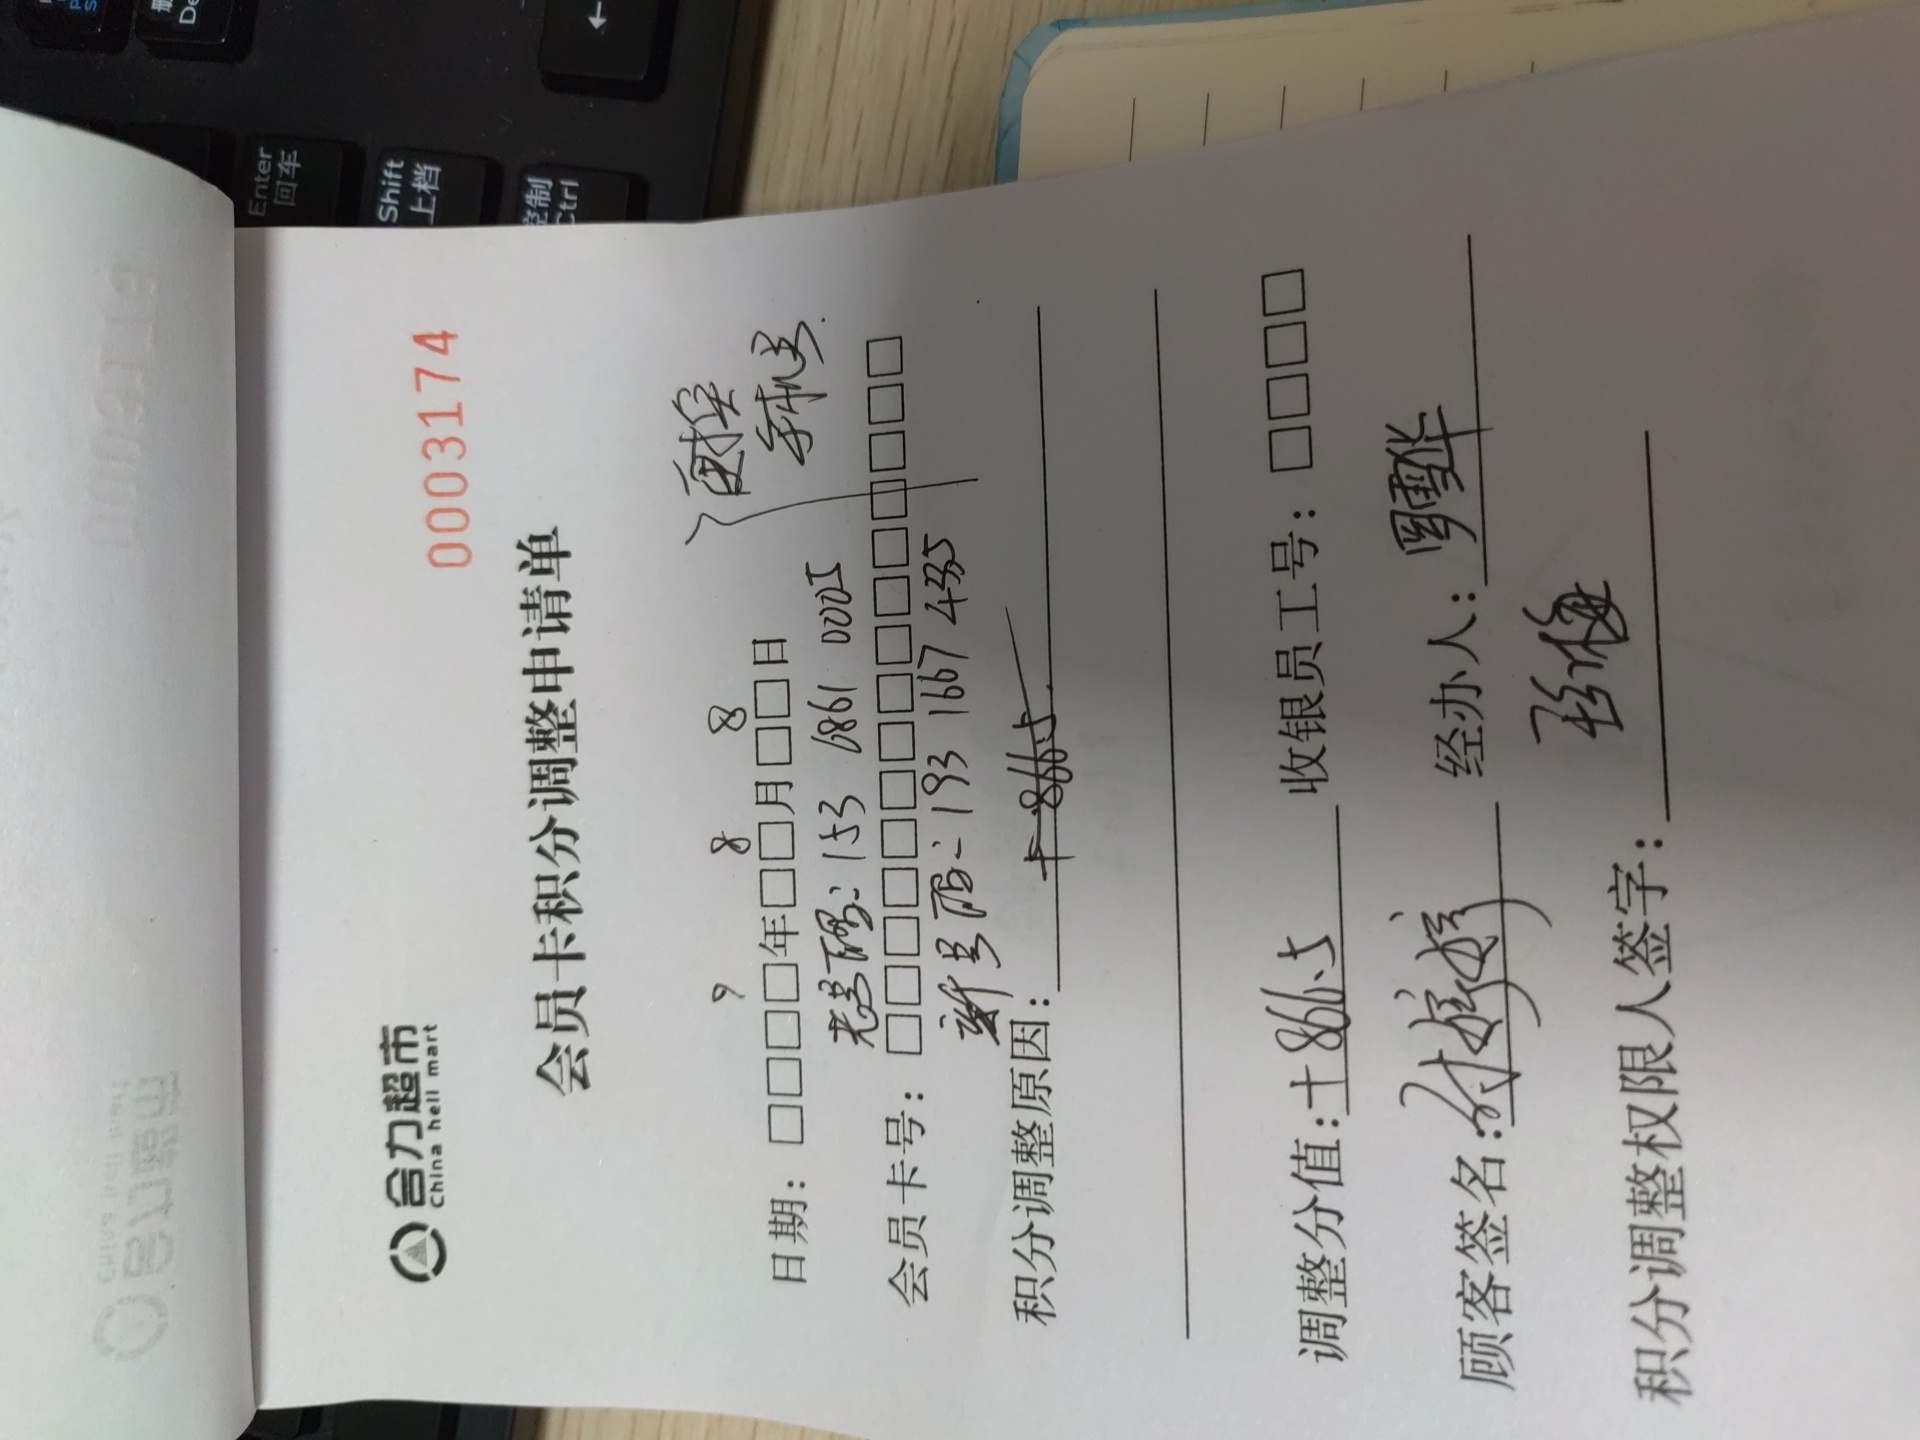 0003174
合力超市
China heli mart
会员卡积分调整申请单
更换
手机号
9 8 8
日期：□□□□年□□月□□日
老号码：153 6861 0002
会员卡号：□□□□□□□□□□□□□□□
新号码：193 1667 4335
积分调整原因：
+866.5
调整分值：+866.5 收银员工号：□□□□
顾客签名： 经办人：
积分调整权限人签字：
Enter
回车
Shift
上档
控制
Ctrl